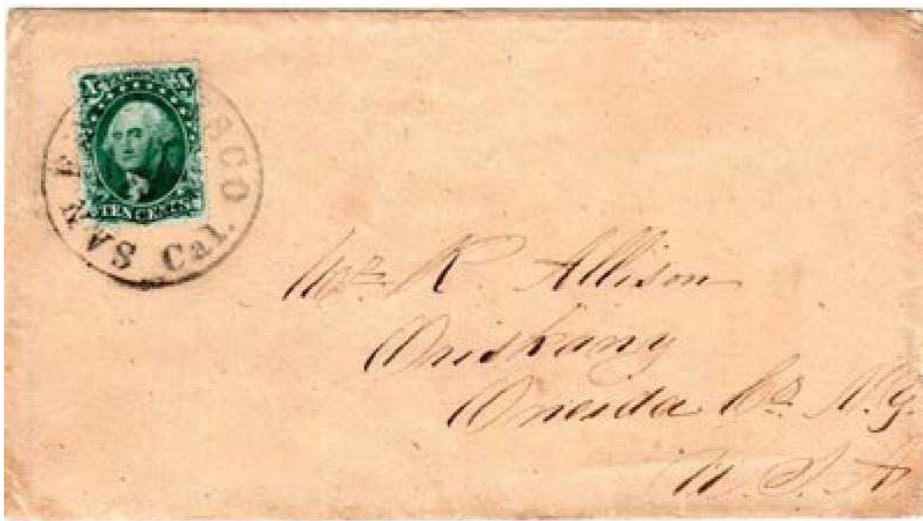 X X
TEN CENTS
SAN F SCO
Cal.
Mr. R. Allison
Oriskany
Oneida Co. N.Y.
U.S.A.